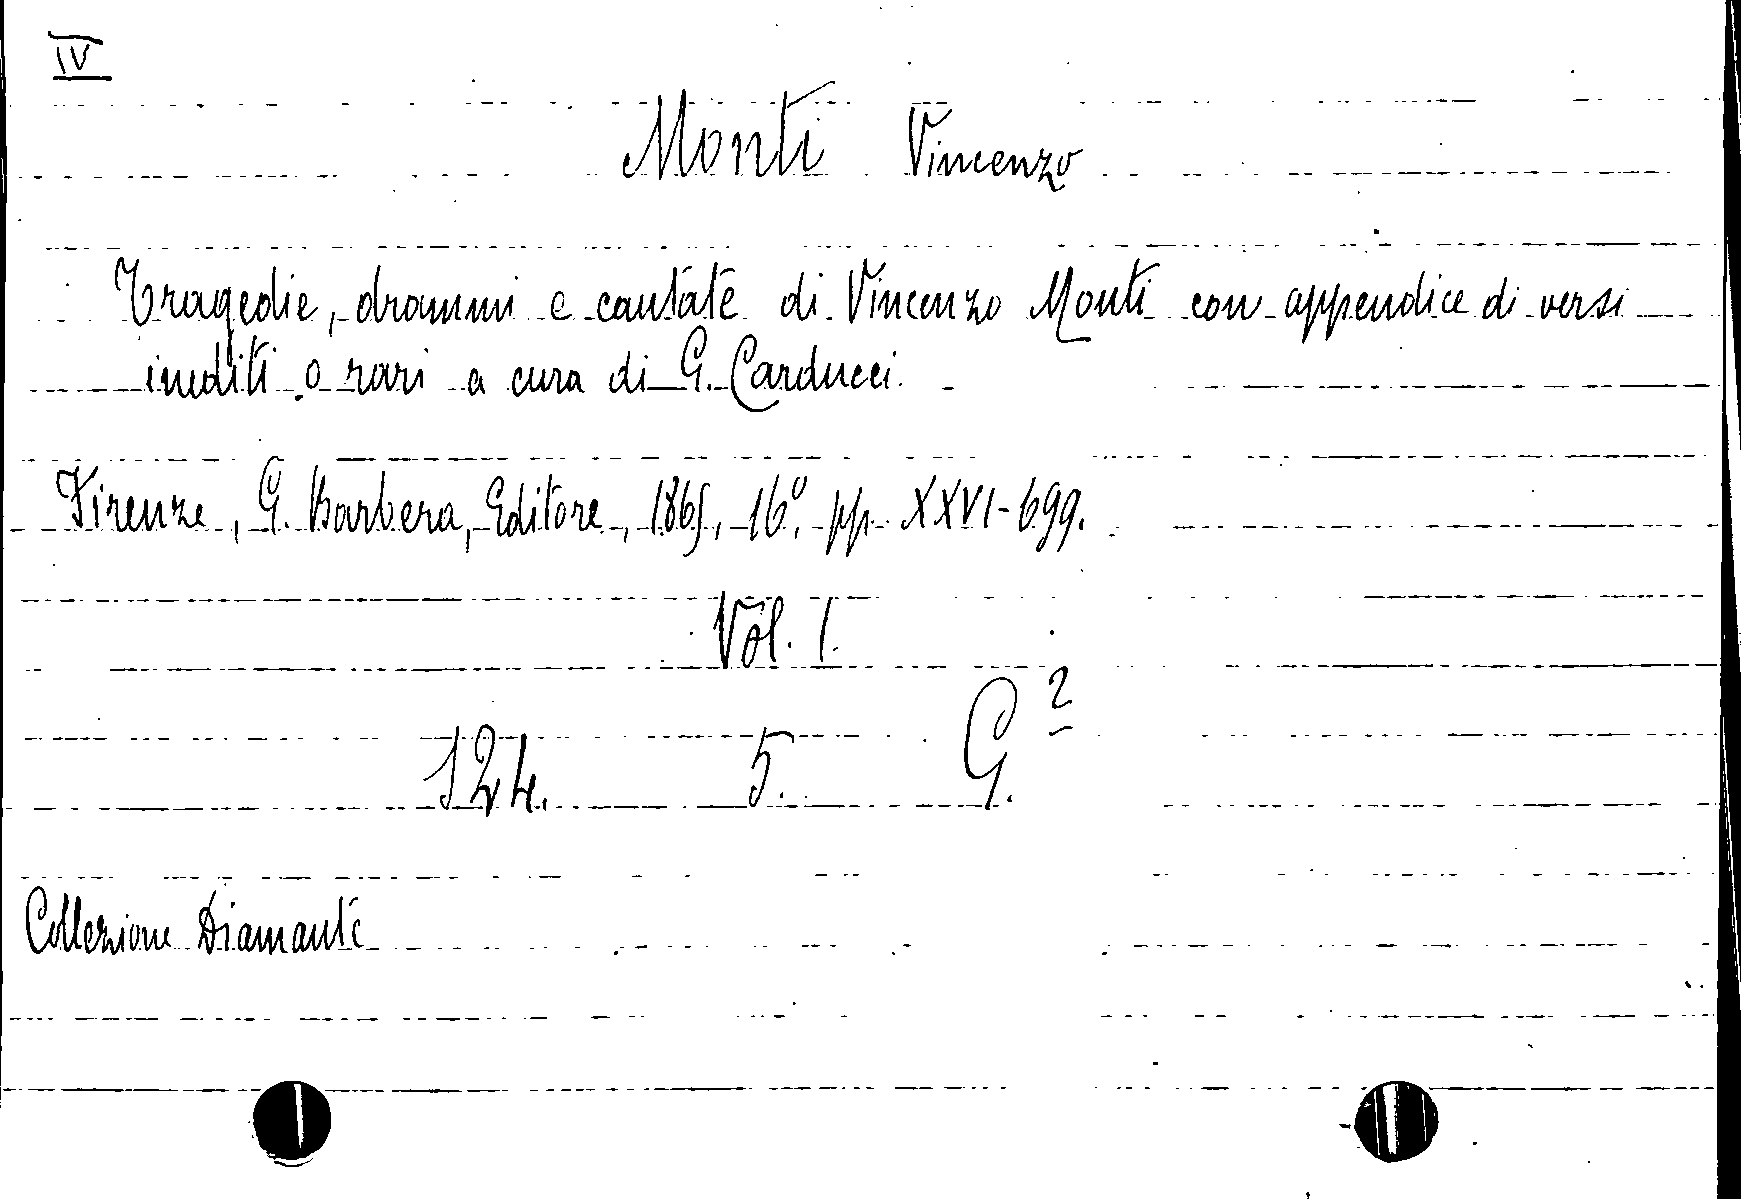 IV
Monti Vincenzo
Tragedie, drammi e cantate di Vincenzo Monti con appendice di versi
inediti o rari a cura di G. Carducci.
Firenze, G. Barbera, Editore, 1865, 16º, pp. XXVI-699.
Vol. I.
124. 5. G.²
Collezione Diamante